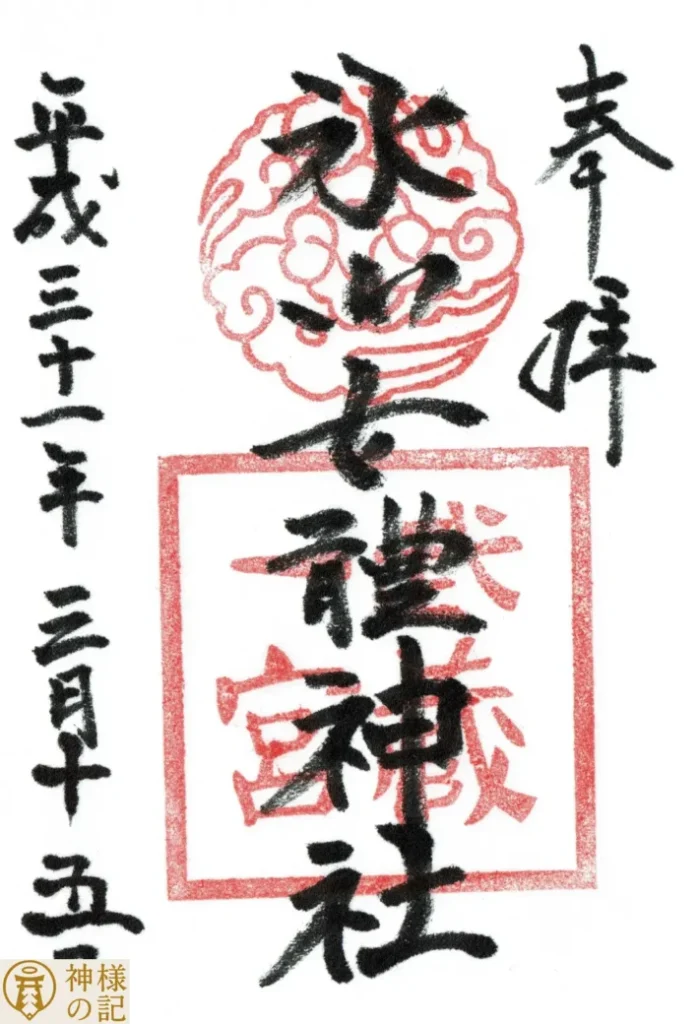 奉拝
氷川女體神社
武蔵
一宮
平成三十一年三月十五
神様
の記